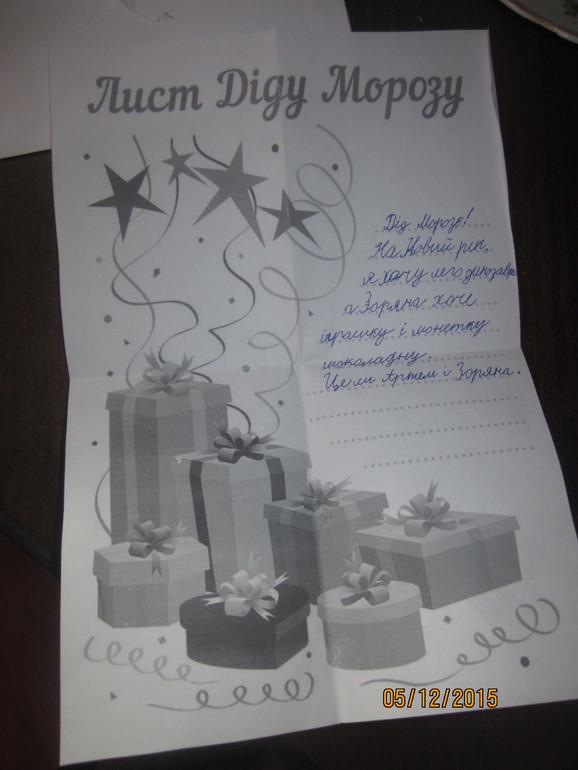 Лист Діду Морозу
Дід Морозе!
На Новий рік,
я хочу лего динозавра
а Зоряна хоче
іграшку і монетку
шоколадну.
Це ми Артем і Зоряна.
05/12/2015